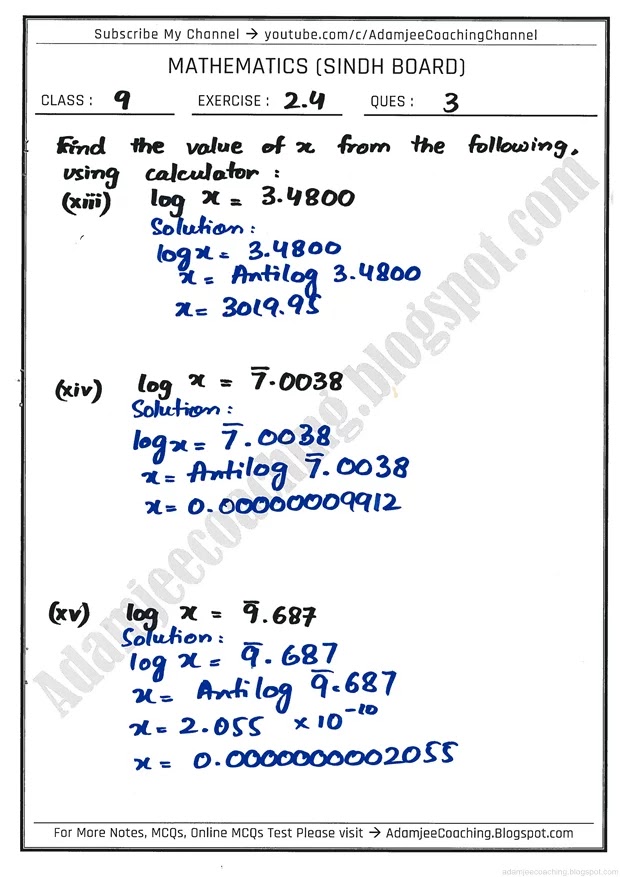 Subscribe My Channel → youtube.com/c/AdamjeeCoachingChannel
MATHEMATICS (SINDH BOARD)
CLASS : 9 EXERCISE : 2.4 QUES : 3
Find the value of x from the following,
using calculator :
(xiii) log x = 3.4800
Solution:
log x = 3.4800
x = Antilog 3.4800
x = 3019.95
(xiv) log x = 7̅.0038
Solution:
log x = 7̅.0038
x = Antilog 7̅.0038
x = 0.00000009912
(xv) log x = 9̅.687
Solution:
log x = 9̅.687
x = Antilog 9̅.687
x = 2.055 × 10⁻¹⁰
x = 0.0000000002055
Adamjeecoaching.blogspot.com
For More Notes, MCQs, Online MCQs Test Please visit → AdamjeeCoaching.Blogspot.com
adamjeecoaching.blogspot.com